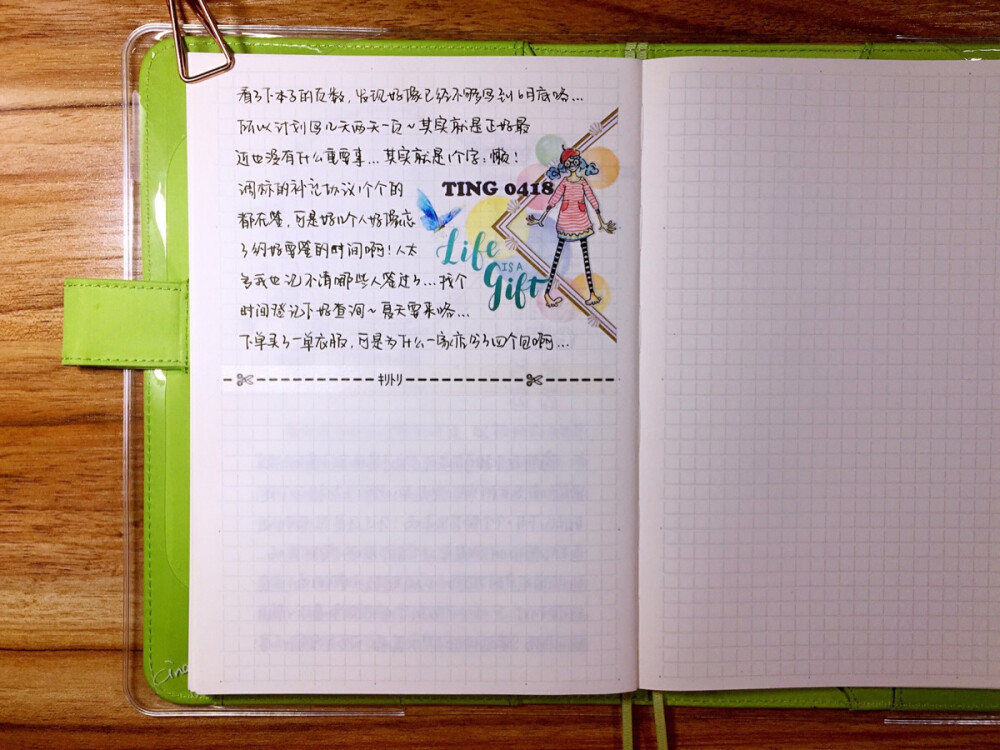 看了下本子的页数，发现好像已经不够写到6月底咯...
所以计划写几天两天一页~其实就是正好最
近也没有什么重要事...其实就是1个字：懒！
调标的补充协议1个个的
都在签，可是好几个人好像忘
了约好要签的时间啊！人太
多我也记不清哪些人签过了...找个
时间登记下好查询~夏天要来咯...
下单买了一单衣服，可是为什么一家店分了四个包啊...
TING 0418
Life
IS A
Gift
ｷﾘﾄﾘ